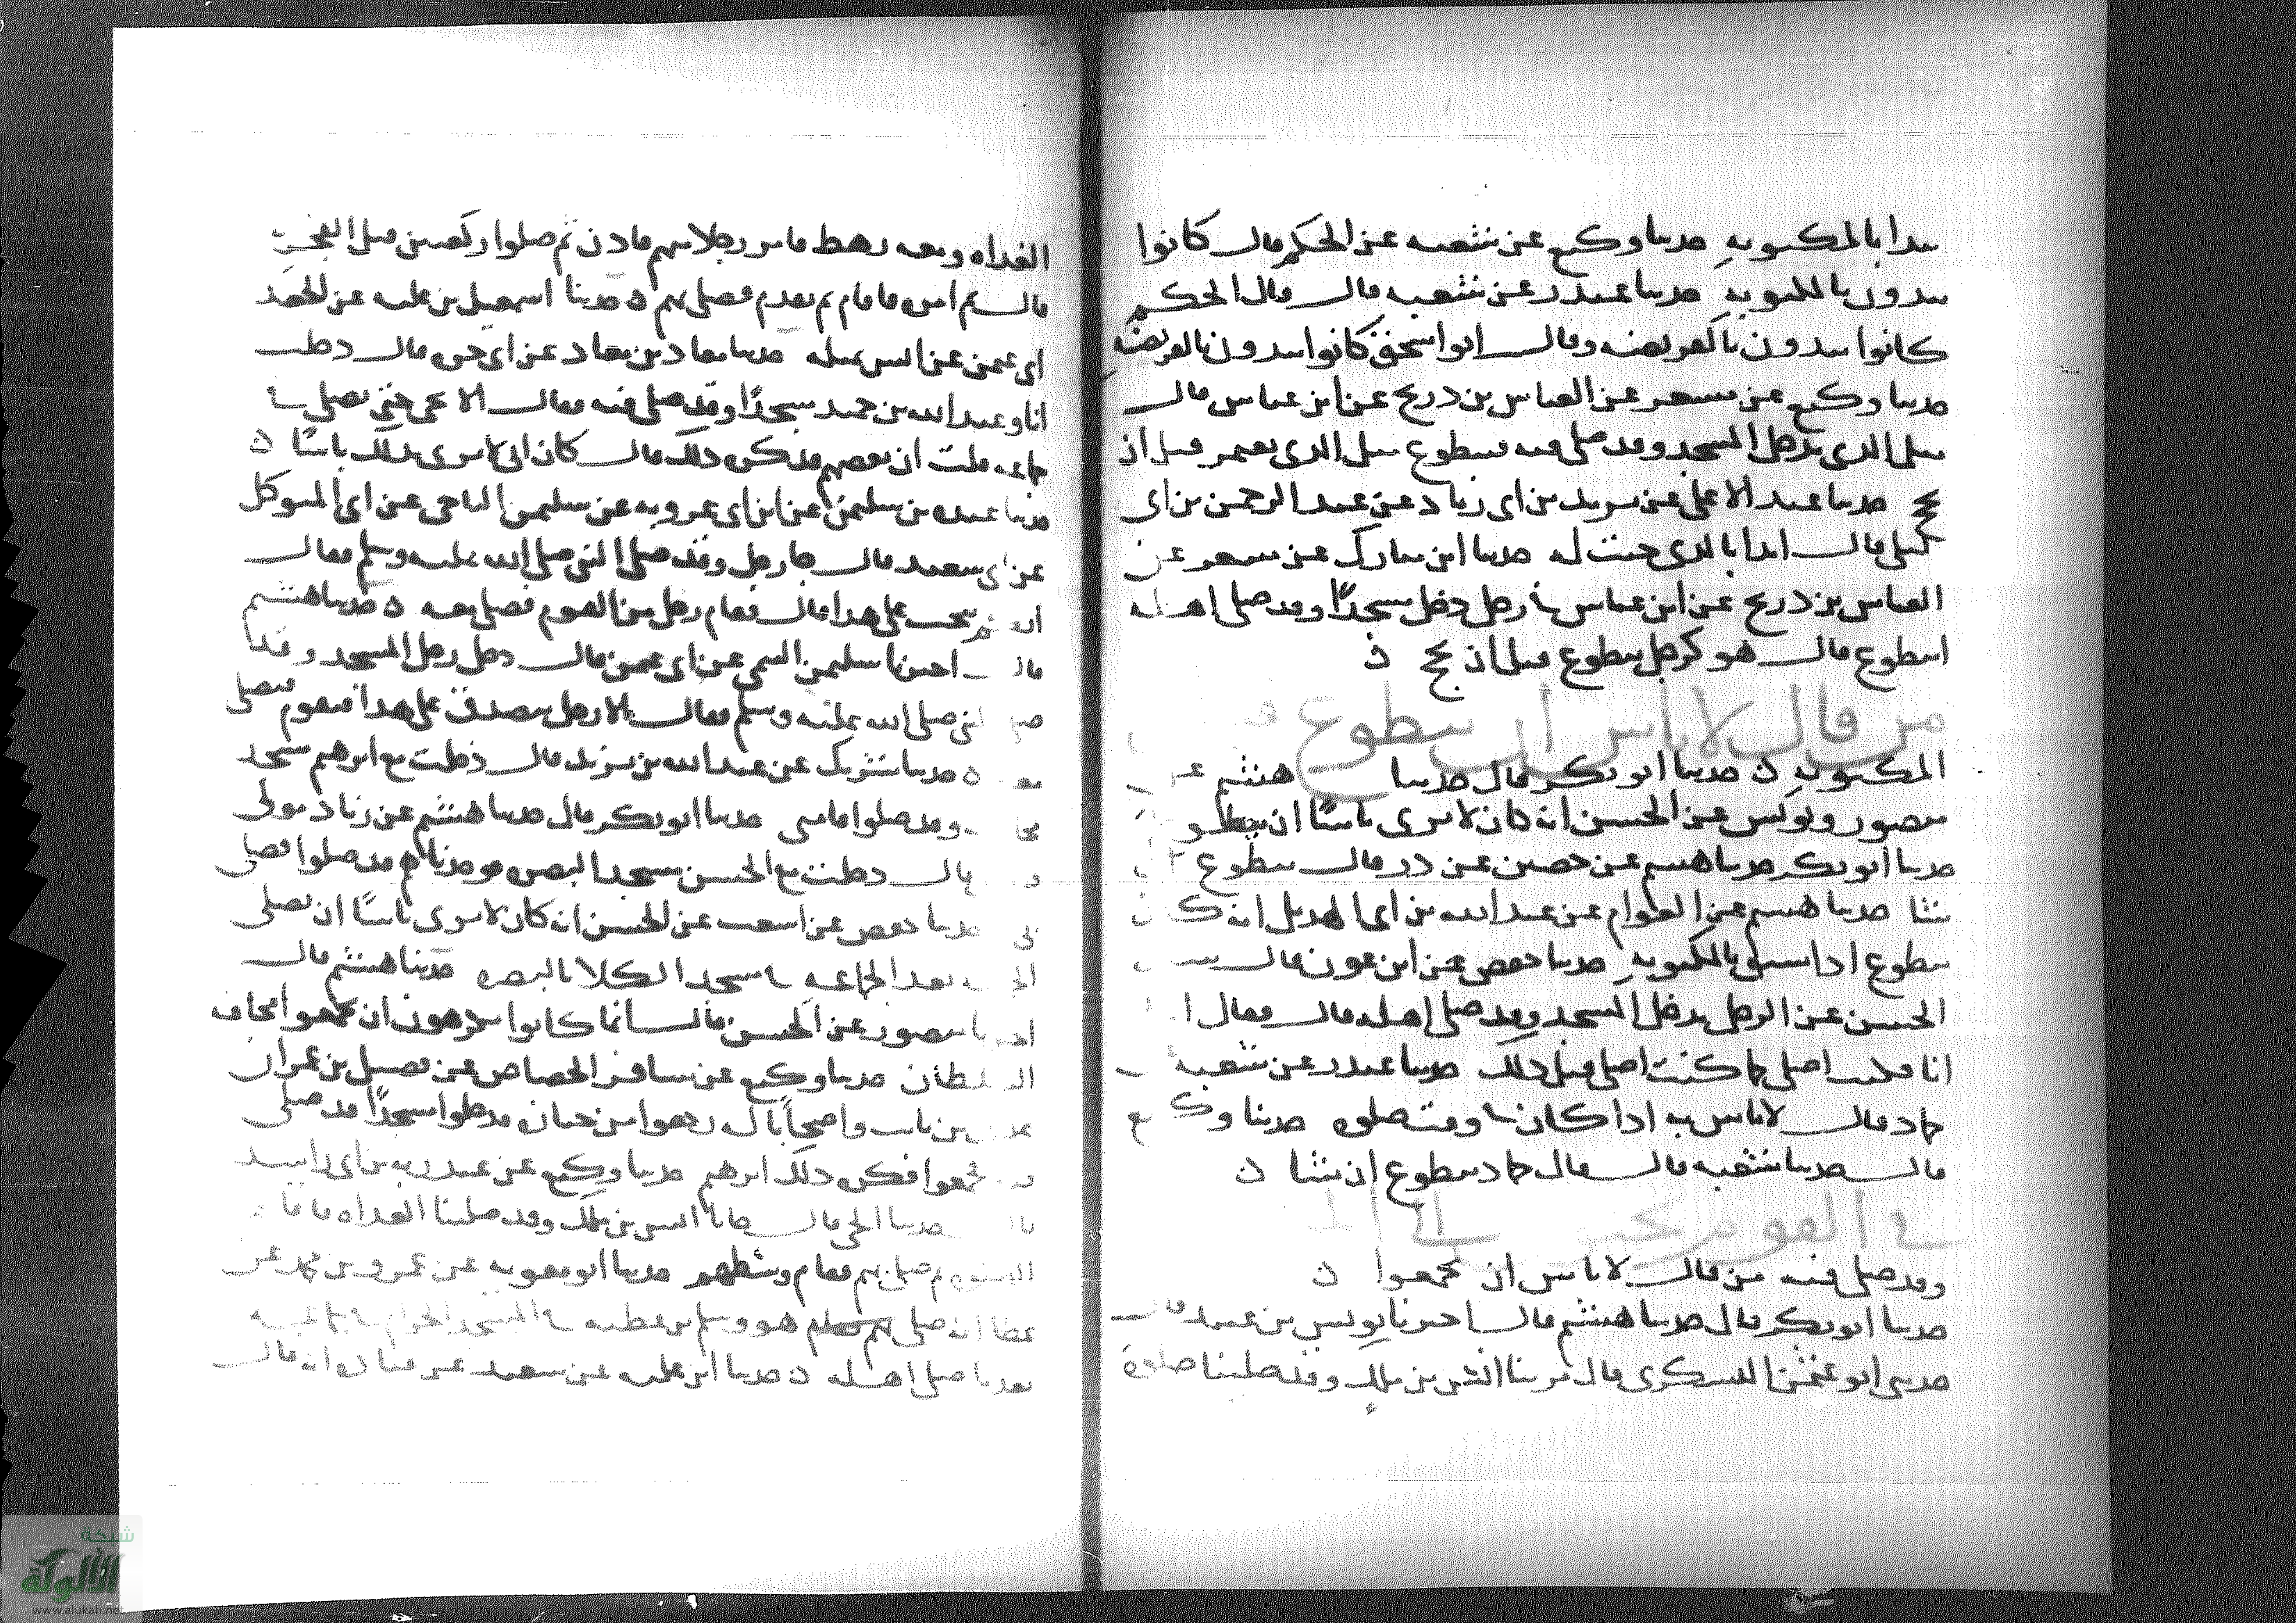 يبدا بالمكتوبه حدثنا وكيع عن شعبه عن الحكم قال كانوا
يبدون بالمكتوبه حدثنا غندر عن شعبه قال قال الحكم
كانوا يبدون بالفريضه وقال ابو اسحق كانوا يبدون بالفريضه
حدثنا وكيع عن مسعر عن العباس بن ذريح عن ابن عباس قال
مثل الذى يدخل المسجد وقد صلى فيه فيتطوع مثل الذى يعتمر قبل ان
يحج حدثنا عبد الاعلى عن يزيد بن ابى زياد عن عبد الرحمن بن ابى
ليلى قال ابدا بالذى جئت له حدثنا ابن مبارك عن مسعر عن
العباس بن ذريح عن ابن عباس فى رجل دخل مسجدًا وقد صلى اهله
ايتطوع قال هو كرجل يتطوع قبل ان يحج ن
من قال لا باس ان يتطوع
المكتوبه ن حدثنا ابو بكر قال حدثنا هشيم عن
منصور ويونس عن الحسن انه كان لا يرى باسًا ان يتطوع
حدثنا ابو بكر حدثنا هشيم عن حصين عن ذر قال يتطوع
شا حدثنا هشيم عن العوام عن عبد الله بن ابى الهذيل انه كان
يتطوع اذا سبق بالمكتوبه حدثنا حفص عن ابن عون قال
الحسن عن الرجل يدخل المسجد وقد صلى اهله قال فقال
انا فكنت اصلى كما كنت اصلى قبل ذلك حدثنا غندر عن شعبه
حماد قال لا باس به اذا كان فى وقت صلوه حدثنا وكيع
قال حدثنا شعبه قال قال حماد يتطوع ان شا ن
فى القوم الى
وقد صلى فيه من قال لا باس ان يجمعوا ن
حدثنا ابو بكر قال حدثنا هشيم قال اخبرنا يونس بن عبيد قال
حدثنى ابو عثمن اليشكرى قال مر بنا انس بن ملك وقد صلينا صلوة
الغداه ومعه رهط فامر رجلا منهم فاذن ثم صلوا ركعتين قبل الفجر
قال ثم امره فاقام ثم تقدم فصلى بهم ن حدثنا اسمعيل بن عليه عن الجعد
ابى عثمن عن انس بمثله حدثنا معاذ بن معاذ عن ابى حره قال دخلت
انا وعبد الله بن حميد مسجدًا وقد صلى فيه فقال الا تجى حتى نصلى فى
جماعه قلت ان بعضهم قد كره ذلك قال كان ابى لا يرى بذلك باسًا ن
حدثنا عبده بن سليمن عن ابن ابى عروبه عن سليمن الناجى عن ابى المتوكل
عن ابى سعيد قال جا رجل وقد صلى النبى صلى الله عليه وسلم فقال
ايكم يتجر على هذا قال فقام رجل من القوم فصلى معه ن حدثنا هشيم
قال اخبرنا سليمن التيمى عن ابى عثمن قال دخل رجل المسجد وقد
صلى النبى صلى الله عليه وسلم فقال الا رجل يتصدق على هذا فيقوم فيصلى
معه ن حدثنا شريك عن عبد الله بن يزيد قال دخلت مع ابرهيم مسجد
وقد صلوا فامنى حدثنا ابو بكر قال حدثنا هشيم عن زياد مولى
قال دخلت مع الحسن مسجد البصره فوجدناهم قد صلوا فصلى
بى حدثنا حفص عن اشعث عن الحسن انه كان لا يرى باسًا ان تصلى
بعد الجماعه فى مسجد الكلا بالبصره حدثنا هشيم قال
اخبرنا منصور عن الحسن قال انما كانوا يكرهون ان يجمعوا مخافه
السلطان حدثنا وكيع عن مسافر الجصاص عن فضيل بن عمرو ان
عدى بن ثابت واصحابا له رجعوا من جنازه فدخلوا مسجدًا قد صلى
فيه فجمعوا فكره ذلك ابرهيم حدثنا وكيع عن عبد ربه بن ابى راشد
قال حدثنا الحى قال جانا انس بن ملك وقد صلينا الغداه فاقا
ثم صلى بهم فقام وسطهم حدثنا ابو معويه عن عمرو بن
عطا انه صلى هو وسلم بن عطيه فى المسجد الحرام
بعد ما صلى اهله ن حدثنا ابن عليه عن سعيد عن قتاده انه قال